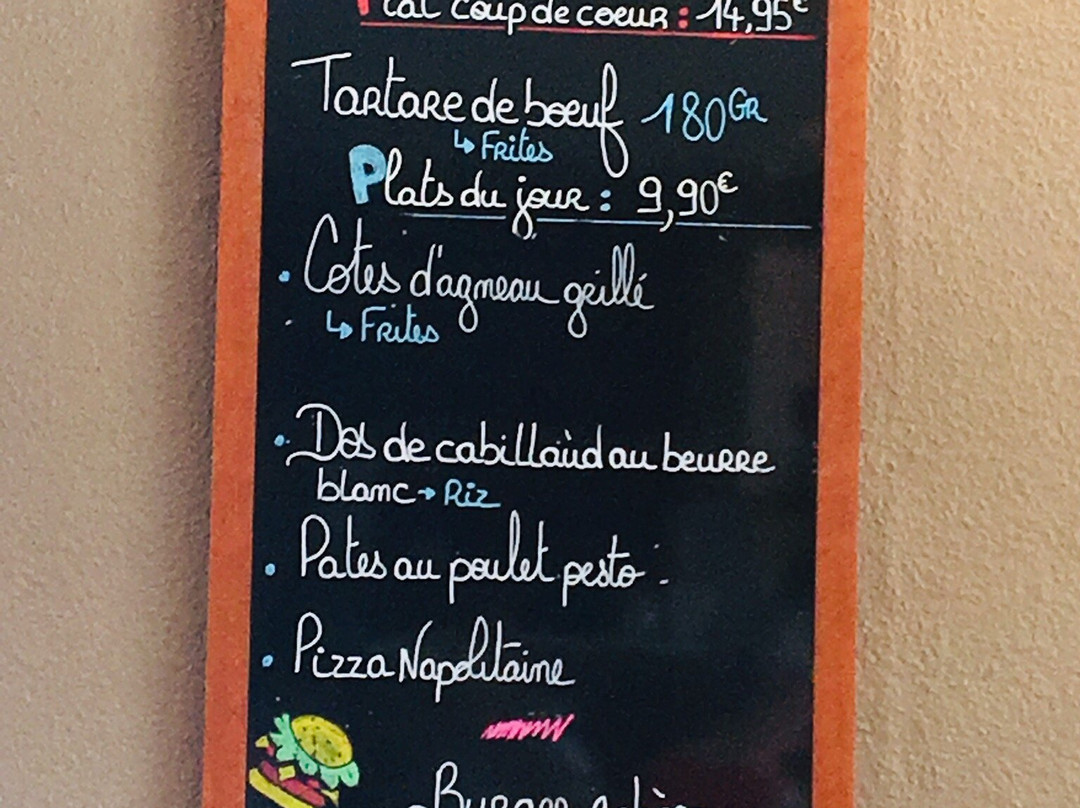 Plat coup de coeur : 14,95€
Tartare de boeuf 180Gr
↳ Frites
Plats du jour : 9,90€
• Cotes d'agneau grillé
↳ Frites
• Dos de cabillaud au beurre
blanc → Riz
• Pates au poulet pesto
• Pizza Napolitaine
Burger